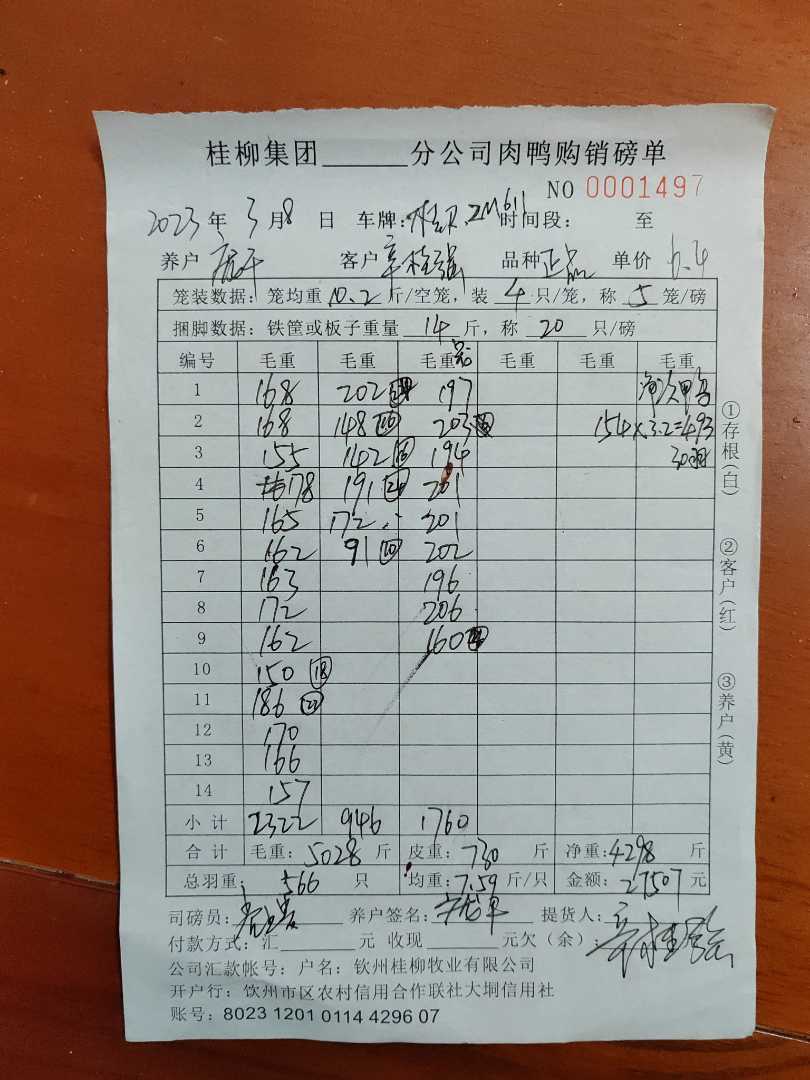 桂柳集团______分公司肉鸭购销磅单
NO 0001497
2023年3月8日 车牌: 桂 ZM611 时间段: 至
养户 客户 辛桂强 品种 正品 单价 6.4
笼装数据: 笼均重 10.2 斤/空笼, 装 4 只/笼, 称 5 笼/磅
捆脚数据: 铁筐或板子重量 14 斤, 称 20 只/磅
编号 毛重 毛重 毛重 毛重 毛重 毛重
1 168 202 197 净次鸭
2 168 148 203 154×3.2=493
3 155 142 194 30羽
4 178 191 201
5 165 172 201
6 162 91 ⑩ 202
7 163 196
8 172 206
9 162 160
10 150 ⑱
11 186
12 170
13 166
14 157
小计 2322 946 1760
合计 毛重: 5028 斤 皮重: 730 斤 净重: 4298 斤
总羽重: 566 只 均重: 7.59 斤/只 金额: 27507 元
司磅员: 养户签名: 提货人: 辛桂强
付款方式: 汇______元 收现______元欠(余):
公司汇款帐号: 户名: 钦州桂柳牧业有限公司
开户行: 钦州市区农村信用合作联社大垌信用社
账号: 8023 1201 0114 4296 07
①存根(白)
②客户(红)
③养户(黄)